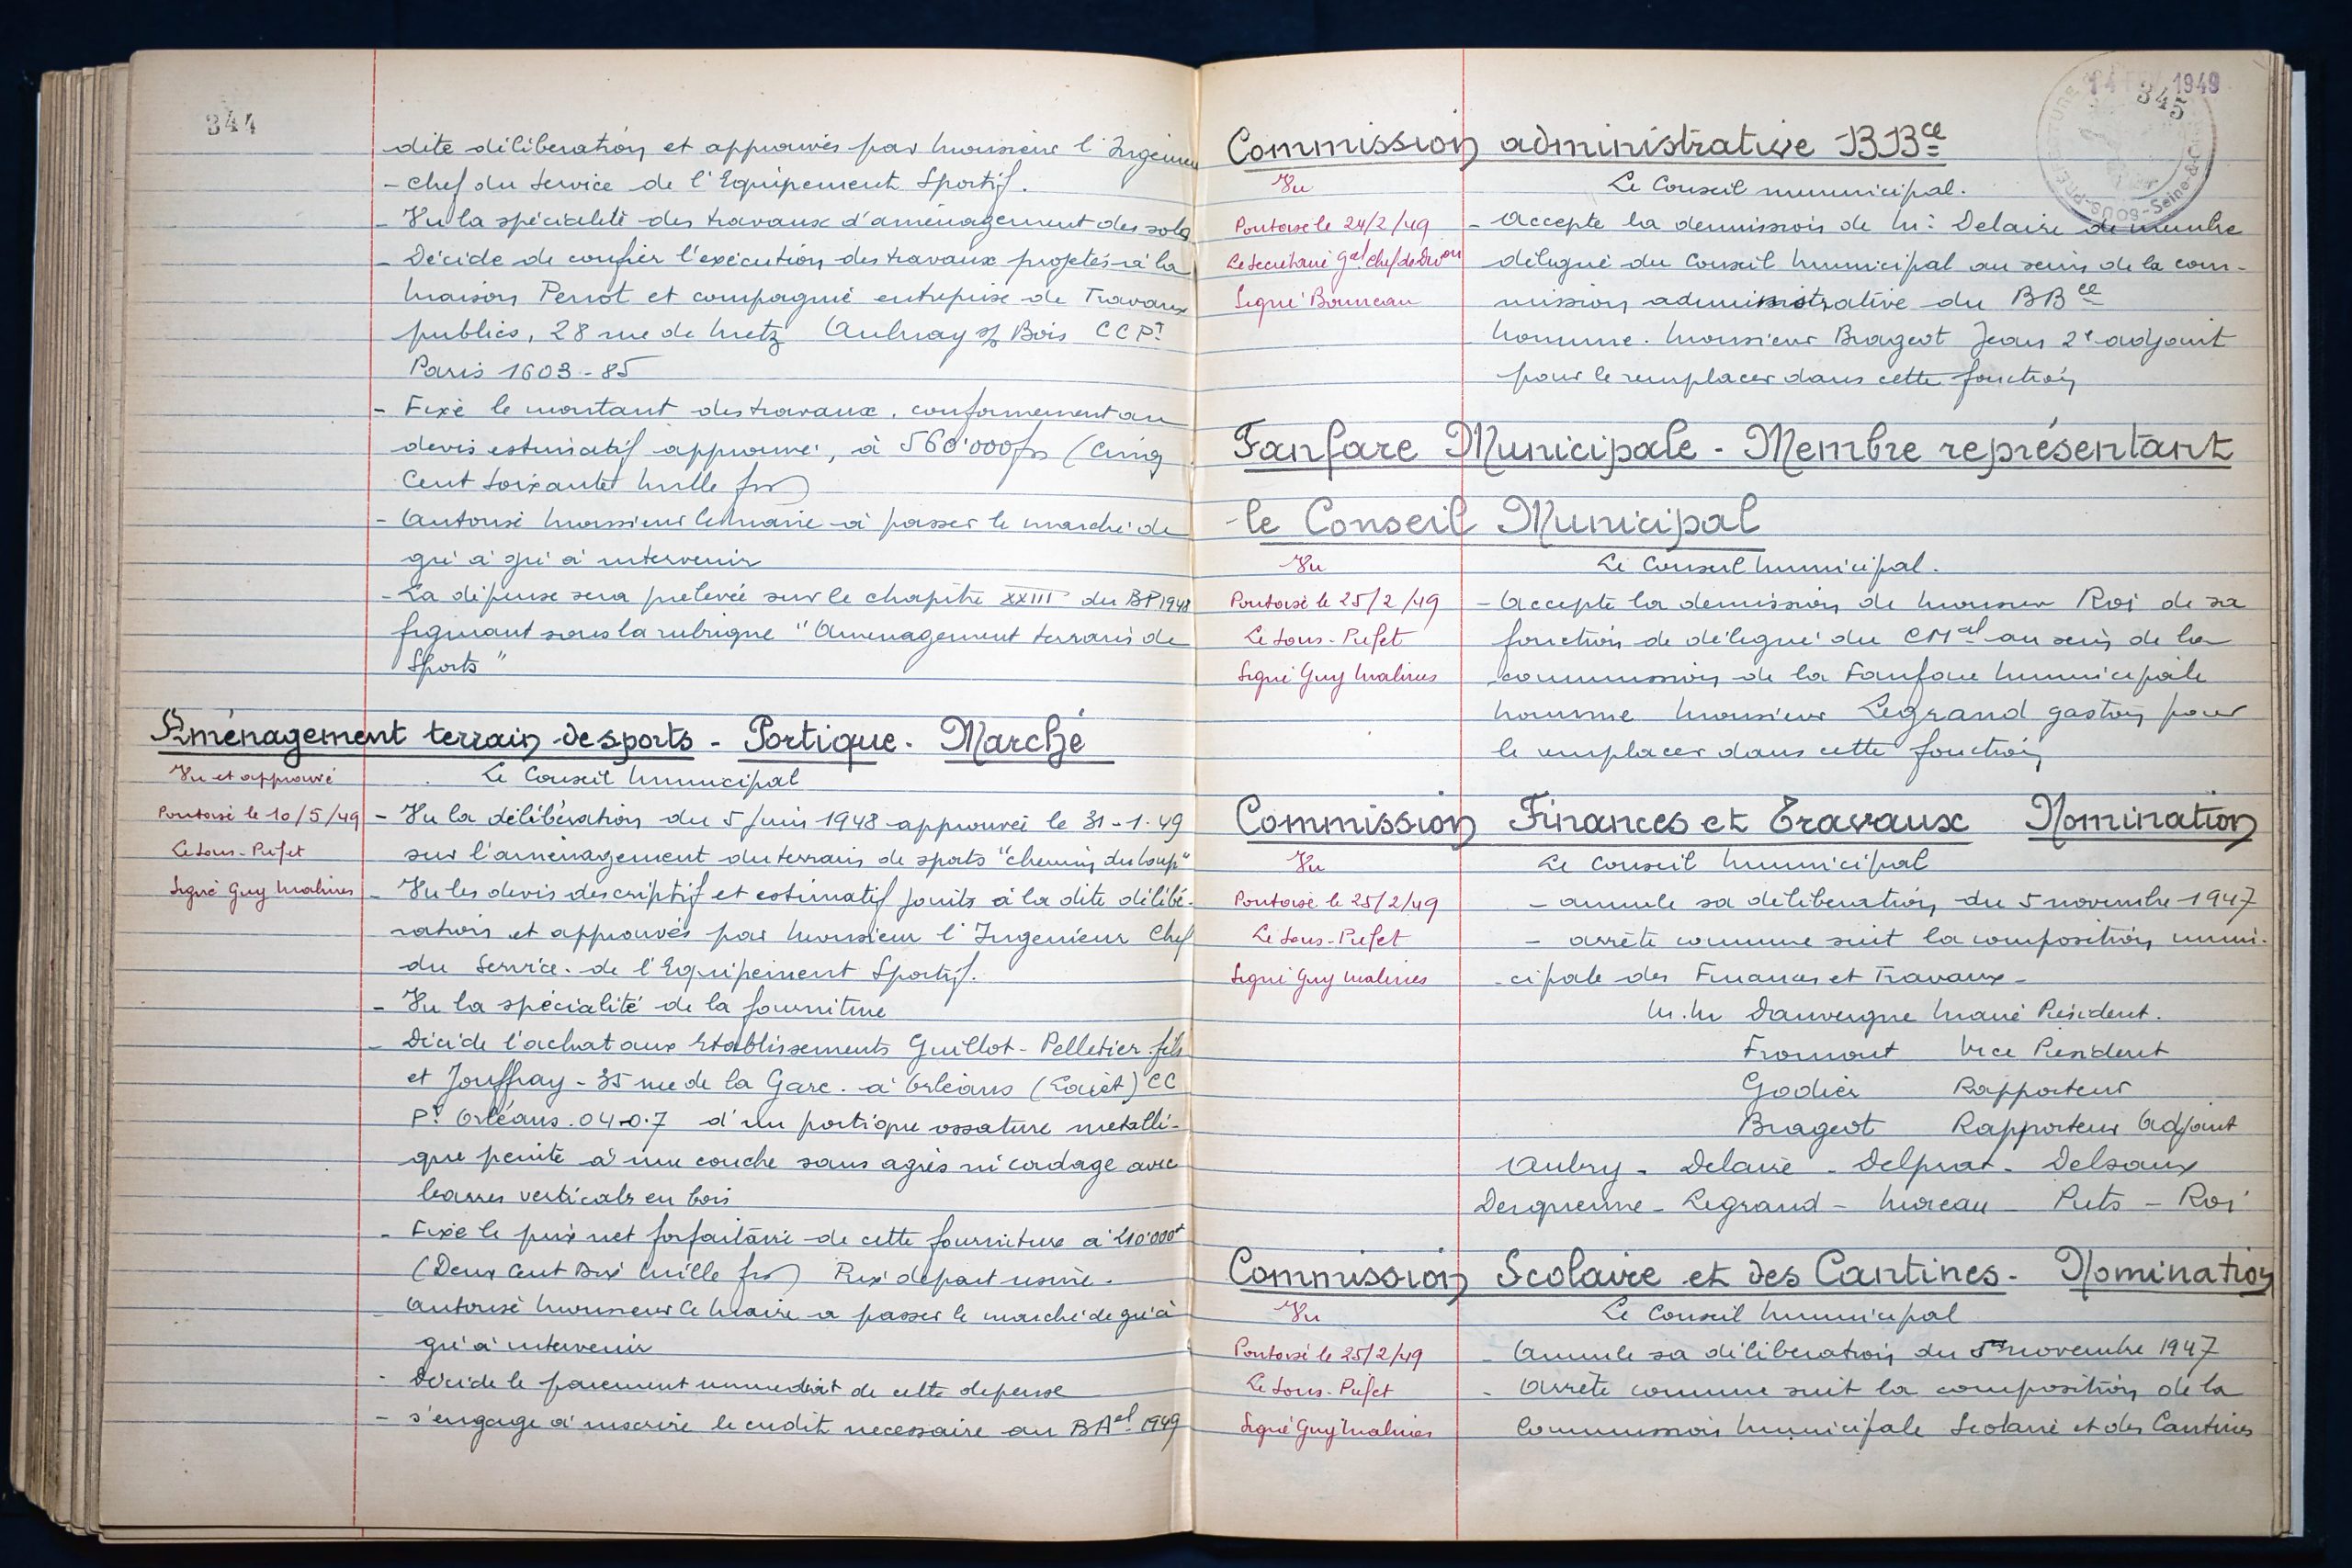 344
dite déliberation et approuvés par Monsieur l'Ingenieur
- chef du Service de l'Equipement Sportif.
- Vu la spécialité des travaux d'aménagement des sols
- Décide de confier l'exécution des travaux projetés à la
Maison Perrot et compagnie entreprise de Travaux
publics, 28 rue de Metz Aulnay s/ Bois CCPt
Paris 1603-85
- Fixe le montant des travaux, conformement au
devis estimatif approuvé, à 560'000 frs (Cinq
Cent Soixante Mille frs)
- Autorise Monsieur le Maire à passer le marché de
gré à gré à intervenir
- La dépense sera prelevée sur le chapitre XXIII du BP 1948
figurant sous la rubrique "Amenagement terrains de
Sports"
Aménagement terrain de sports - Portique - Marché
Vu et approuvé
Le Conseil Municipal
Pontoise le 10/5/49
- Vu la délibération du 5 Juin 1948 approuvée le 31-1-49
Le Sous-Prefet
sur l'aménagement du terrain de sports "chemin du loup"
Signé Guy Malines
- Vu les devis descriptif et estimatif joints à la dite délibé-
ration et approuvés par Monsieur l'Ingenieur Chef
du Service de l'Equipement Sportif.
- Vu la spécialité de la fourniture
- Décide l'achat aux Etablissements Guillot-Pelletier fils
et Jouffray - 35 rue de la Gare à Orléans (Loiret) CC
Pt Orléans 04-0.7 d'un portique ossature metalli-
que peinte à une couche sans agrès ni cordage avec
barres verticales en bois
- Fixe le prix net forfaitaire de cette fourniture à 210'000f
(Deux Cent Dix Mille frs) Prix départ usine.
- Autorise Monsieur le Maire a passer le marché de gré à
gré à intervenir
- Décide le paiement immediat de cette depense
- s'engage à inscrire le credit necessaire au BAel 1949
14 1949
345
SOUS-PRÉFECTURE
Seine-&-Oise
Commission administrative BBce
Vu
Le Conseil municipal.
Pontoise le 24/2/49
- Accepte la demission de M. Delaire de membre
Le Secretaire Gal chef de Don
délegué du Conseil Municipal au sein de la com-
Signé Bonneau
mission administrative du BBce
nomme Monsieur Brageot Jean 2e adjoint
pour le remplacer dans cette fonction
Fanfare Municipale - Membre représentant
le Conseil Municipal
Vu
Le Conseil Municipal.
Pontoise le 25/2/49
- Accepte la demission de Monsieur Roi de sa
Le Sous-Prefet
fonction de délegué du CMal au sein de la
Signé Guy Malines
commission de la Fanfare Municipale
nomme Monsieur Legrand gaston pour
le remplacer dans cette fonction
Commission Finances et Travaux Nomination
Vu
Le Conseil Municipal
Pontoise le 25/2/49
- annule sa déliberation du 5 novembre 1947
Le Sous-Prefet
- arrête comme suit la composition muni-
Signé Guy Malines
cipale des Finances et Travaux -
M.M Dauvergne Maire Président.
Fromont Vice Président
Godier Rapporteur
Brageot Rapporteur Adjoint
Aubry - Delaire - Delprat - Delsaux
Desquenne - Legrand - Moreau - Puts - Roi
Commission Scolaire et des Cantines - Nomination
Vu
Le Conseil Municipal
Pontoise le 25/2/49
- Annule sa déliberation du 5 novembre 1947
Le Sous-Préfet
- Arrête comme suit la composition de la
Signé Guy Malines
Commission Municipale Scolaire et des Cantines